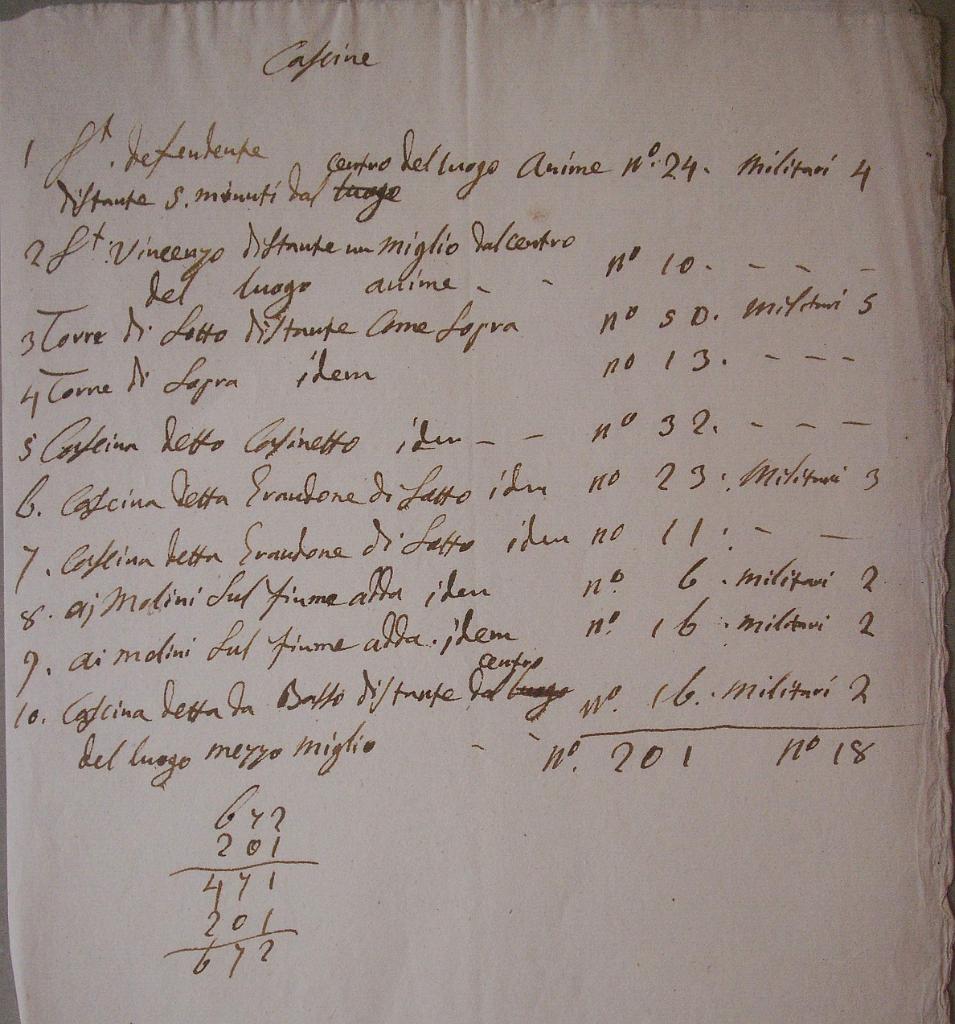 Cascine
1 St. defendente
centro del luogo anime nº. 24. militari 4
distante 5. minuti dal luogo
2 St. Vincenzo distante un miglio dal centro
del luogo anime - - nº 10. - - -
3 Torre di Sotto distante Come Sopra nº 50. militari 5
4 Torre di Sopra idem nº 13. - - -
5 Cascina detto Casinetto idem - - nº 32. - - -
6. Cascina detta Erandone di Sotto idem nº 23. Militari 3
7. Cascina detta Erandone di Sotto idem nº 11. - -
8. ai Molini Sul fiume adda idem nº. 6. militari 2
9. ai molini Sul fiume adda. idem nº. 16. militari 2
centro
10. Cascina detta da Basso distante dal luogo nº. 16. militari 2
del luogo mezzo miglio - - nº. 201 nº 18
672
201
471
201
672